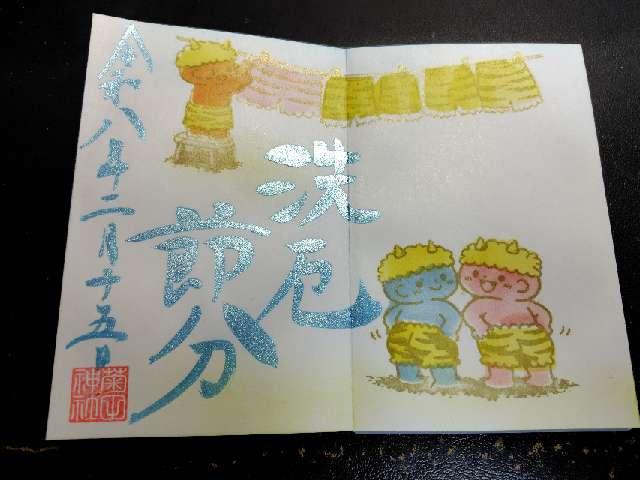 洗厄
節分
令和八年二月十五日
菊田
神社